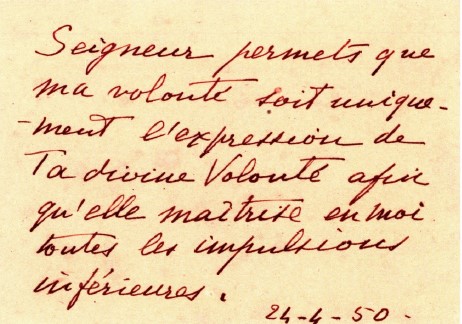 Seigneur permets que
ma volonté soit unique-
-ment l'expression de
Ta divine Volonté afin
qu'elle maîtrise en moi
toutes les impulsions
inférieures.
24-4-50-